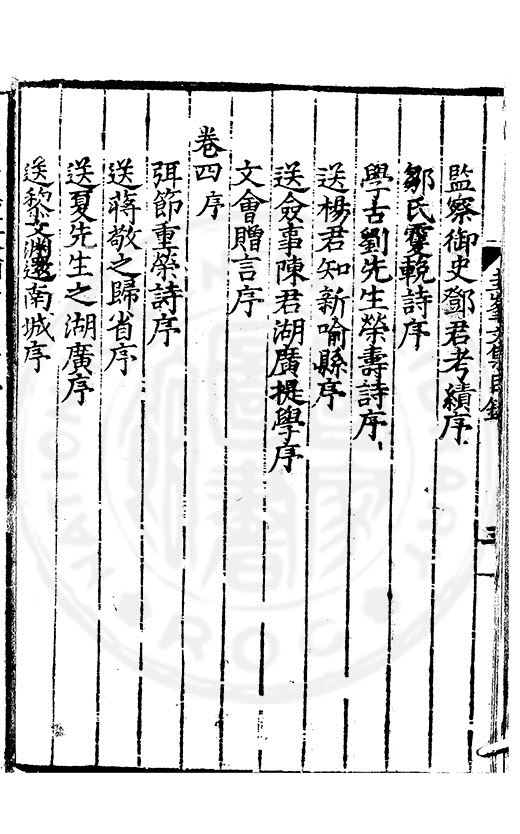 監察御史鄧君考績序
鄒氏雙輓詩序
學古劉先生榮壽詩序
送楊君知新喻縣序
送僉事陳君湖廣提學序
文會贈言序
卷四序
弭節重榮詩序
送蔣敬之歸省序
送夏先生之湖廣序
送黎文淵還南城序
文集目錄
三